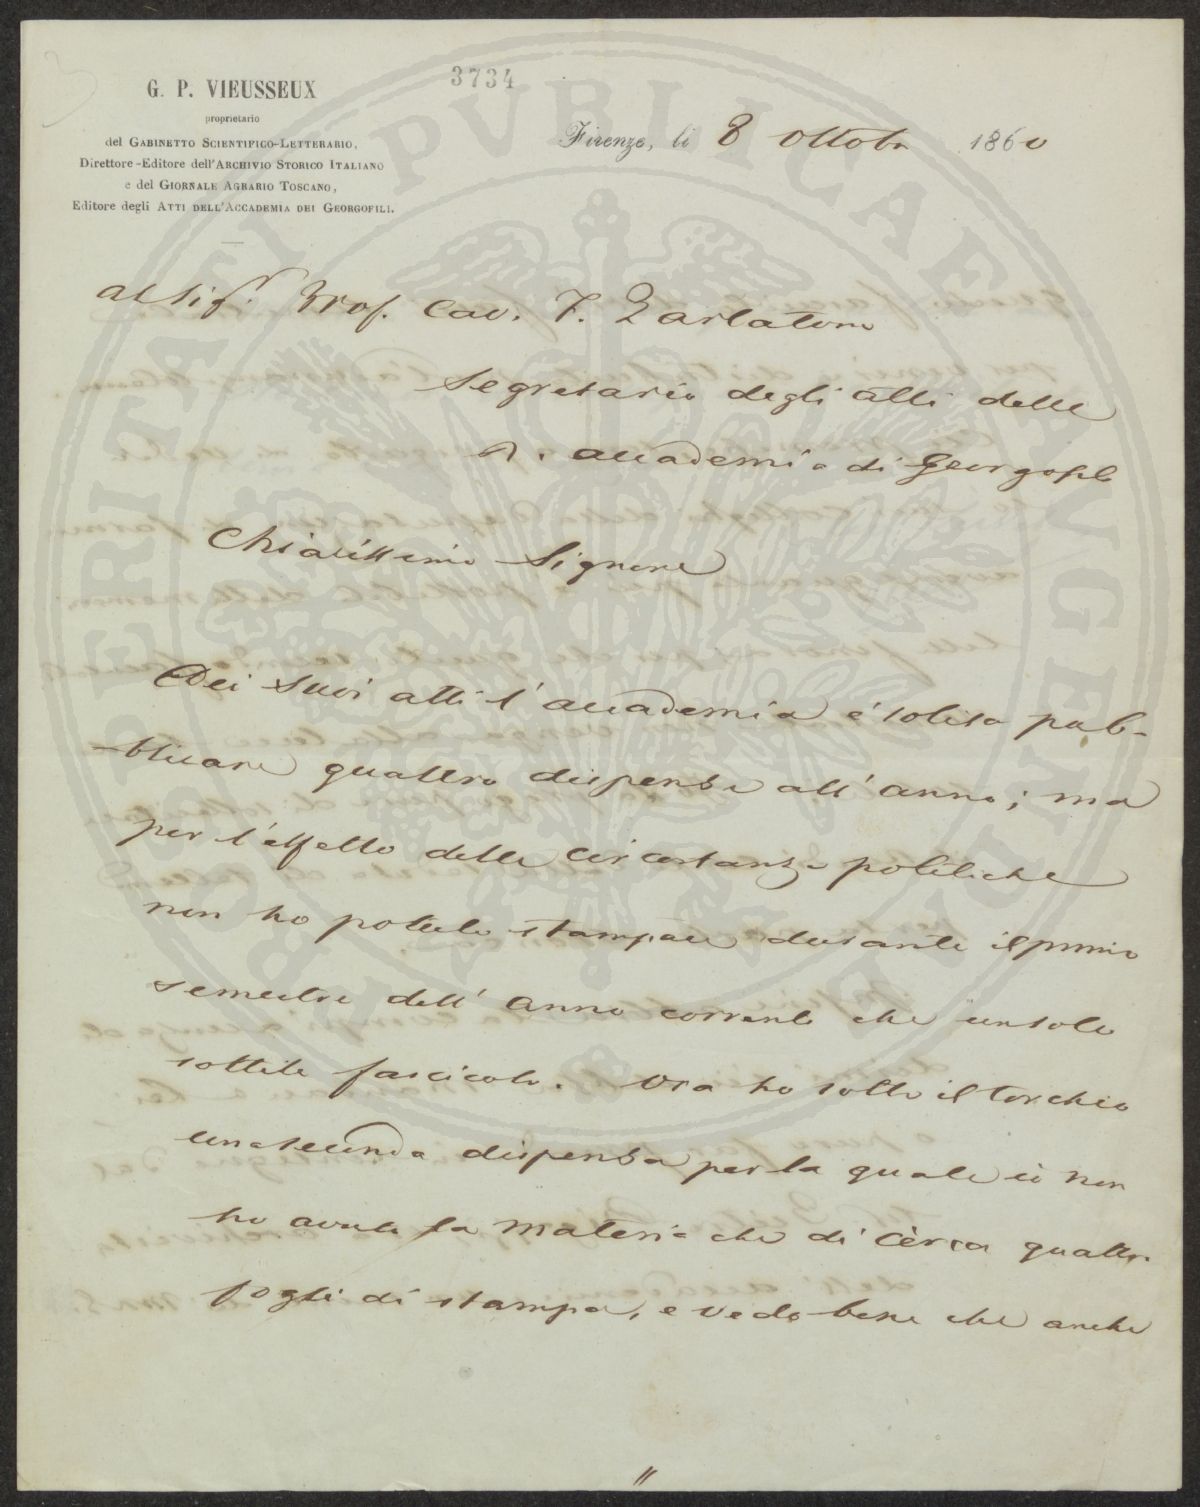 3
3734
G. P. VIEUSSEUX
proprietario
del GABINETTO SCIENTIFICO-LETTERARIO,
Direttore-Editore dell'ARCHIVIO STORICO ITALIANO
e del GIORNALE AGRARIO TOSCANO,
Editore degli ATTI DELL'ACCADEMIA DEI GEORGOFILI.
Firenze, li 8 Ottobr 1860
al Sigr. Prof. Cav. F. Parlatore
Segretario degli atti delle
R. accademia di Georgofili
Chiarissimo Signore
Dei suoi atti l'accademia è solita pub-
-blicare quattro dispense all'anno; ma
per l'effetto delle circostanze politiche
non ho potuto stampare durante il primo
semestre dell'anno corrente che un solo
sottile fascicolo. Ora ho sotto il torchio
una seconda dispensa per la quale io non
ho avuto la materia che di circa quattro
fogli di stampa, e vedo bene che anche
PROSPERITATI PUBLICAE AUGENDAE